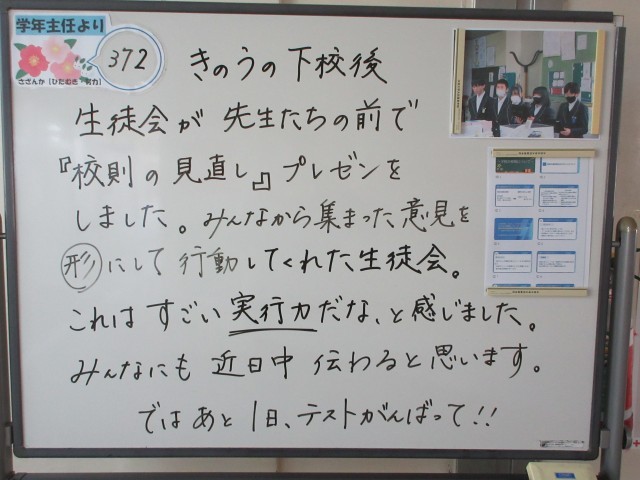 学年主任より
372
さざんか［ひたむき 努力］
きのうの下校後
生徒会が 先生たちの前で
『校則の見直し』プレゼンを
しました。みんなから集まった意見を
形にして 行動してくれた生徒会。
これは すごい 実行力だな、と感じました。
みんなにも 近日中 伝わると思います。
では あと 1日、テストがんばって!!